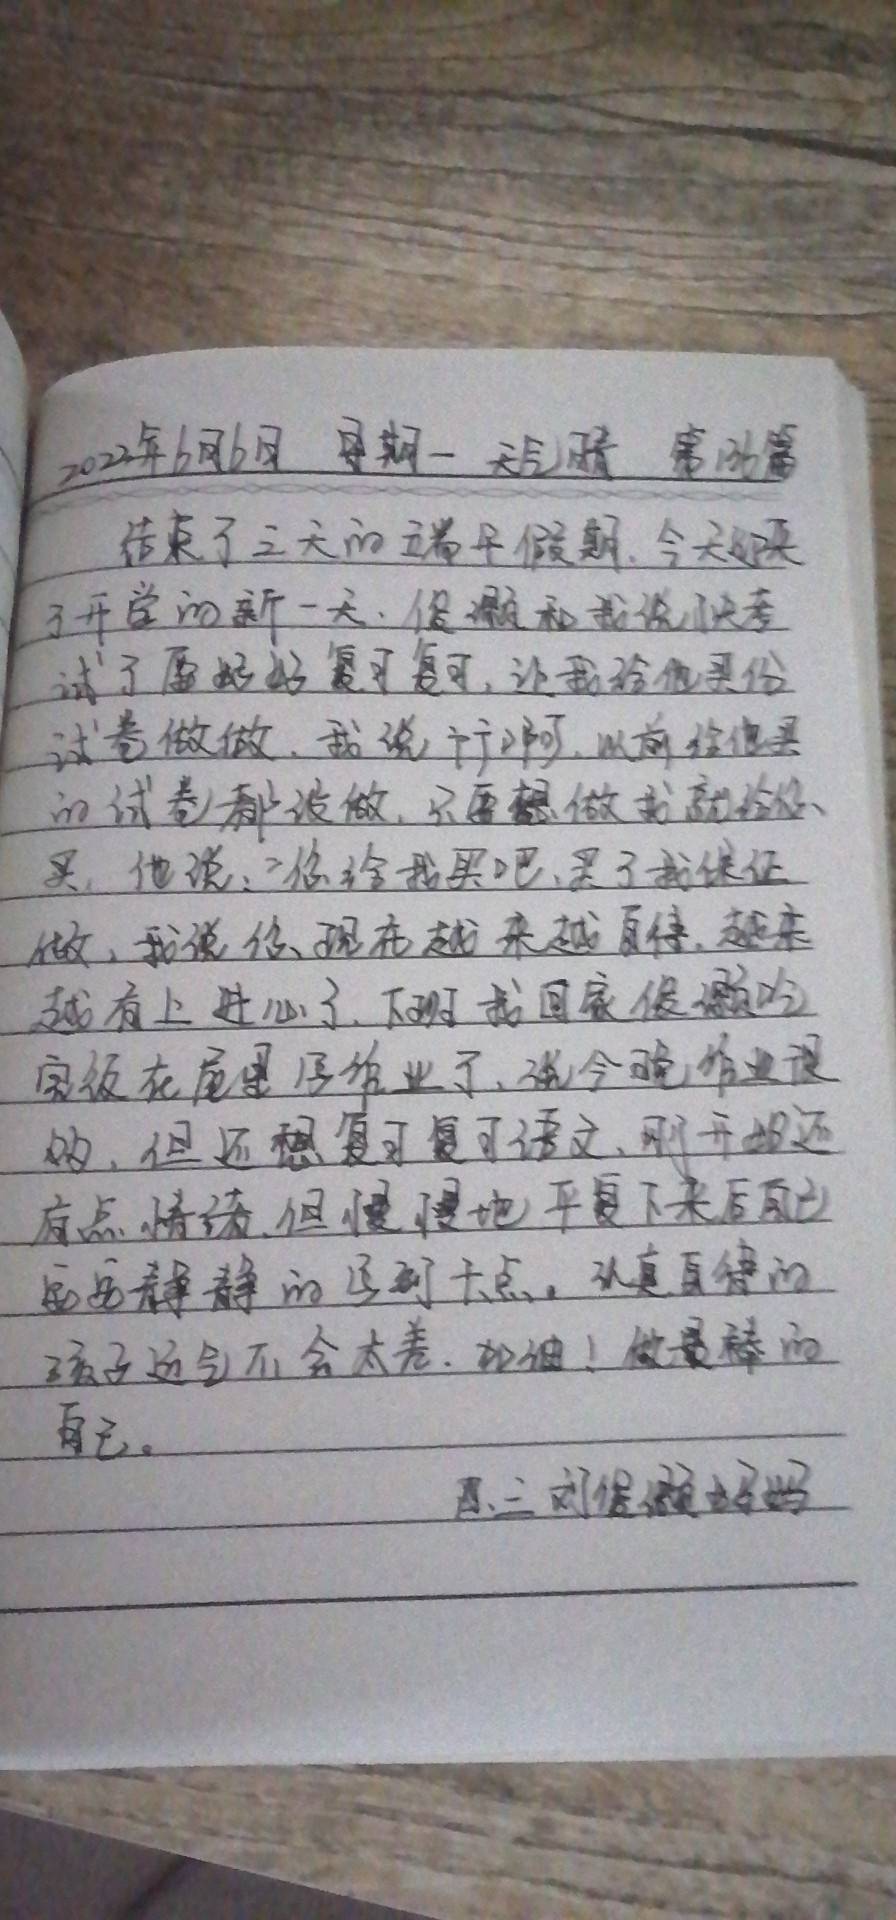 2022年6月6日 星期一 天气晴 第136篇
结束了三天的端午假期.今天迎来
了开学的新一天.俊灏和我说快考
试了要好好复习复习,让我给他买份
试卷做做.我说行啊.以前给他买
的试卷都没做.只要想做我就给你
买,他说:"你给我买吧、买了我保证
做,我说你现在越来越自律.越来
越有上进心了.下班我回家俊灏吃
完饭在屋里写作业了、说今晚作业没
的、但还想复习复习语文、刚开始还
有点情绪.但慢慢地平复下来后自己
安安静静的写到十点。认真自律的
孩子运气不会太差.加油!做最棒的
自己。
四、三 刘俊灏妈妈